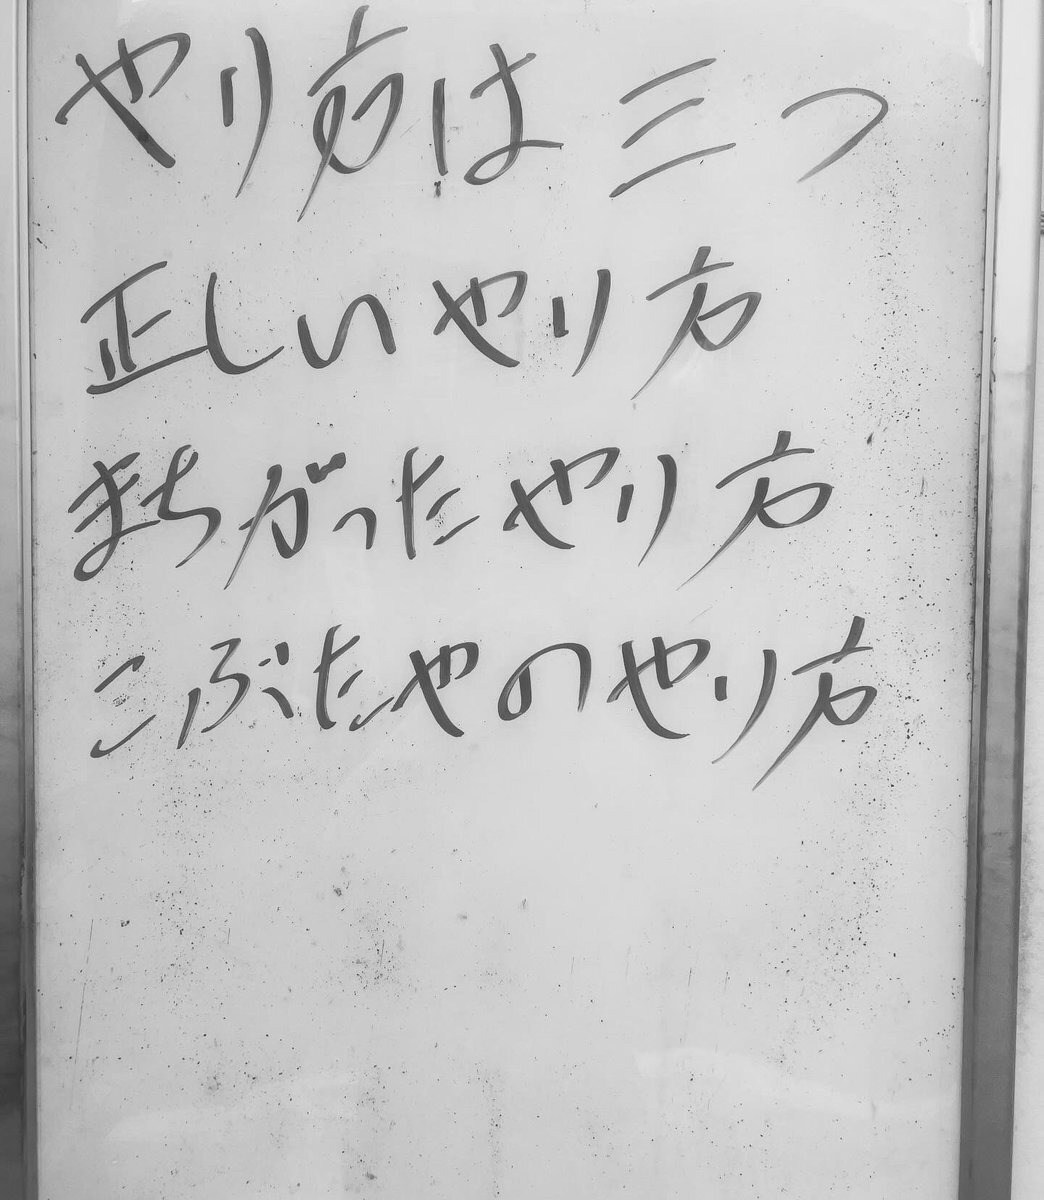 やり方は三つ
正しいやり方
まちがったやり方
こぶたやのやり方